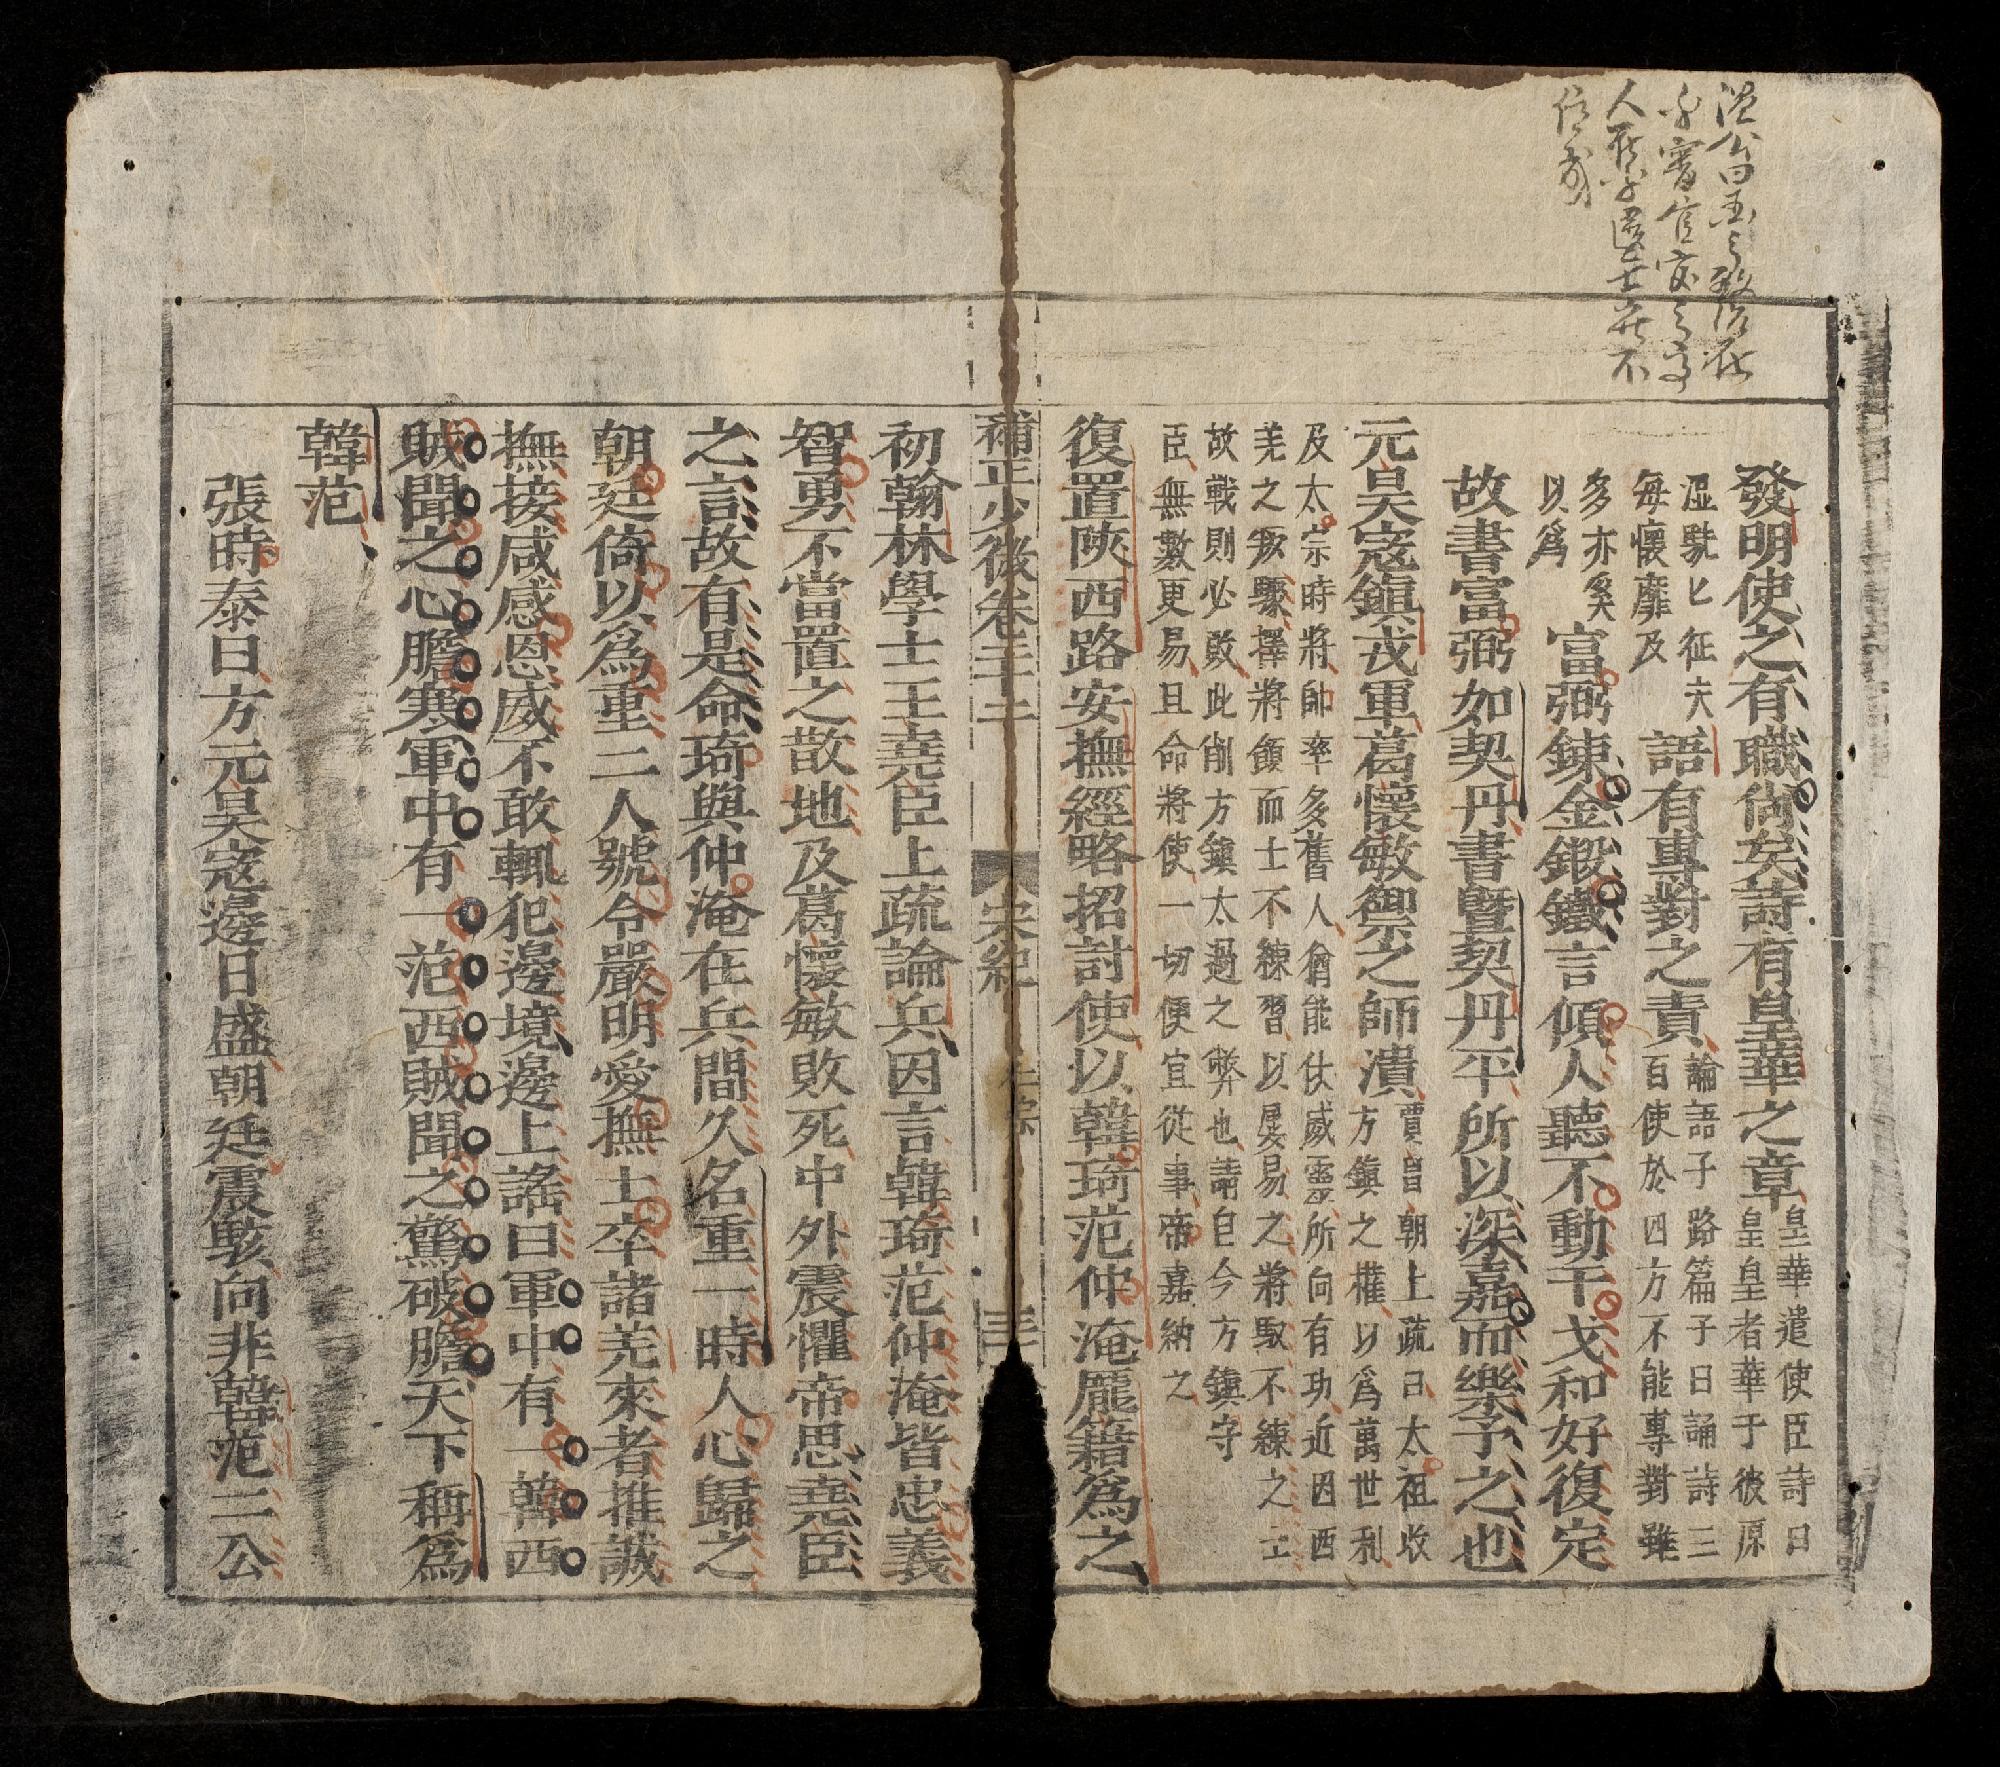 發明使之有職尚矣詩有皇華之章
皇華遣使臣詩曰
皇皇者華于彼原
濕駪匕征夫
每懷靡及
語有專對之責
論語子路篇子曰誦詩三
百使於四方不能專對雖
多亦奚
以爲
富弼鍊金鍛鐵言傾人聽不動干戈和好復定
故書富弼如契丹書暨契丹平所以深嘉而樂予之也
元昊寇鎭戎軍葛懷敏禦之師潰
賈昌朝上疏曰太祖收
方鎮之權以爲萬世利
及太宗時將帥率多舊人猶能仗威靈所向有功近因西
羌之叛驟擇將領而士不練習以屡易之將馭不練之士
故戰則必敗此削方鎮太過之弊也請自今方鎮守
臣無數更易且命將使一切便宜從事帝嘉納之
復置陝西路安撫經略招討使以韓琦范仲淹龐籍爲之
補正少微卷三十二
宋紀
仁宗
初翰林學士王堯臣上疏論兵因言韓琦范仲淹皆忠義
智勇不當置之散地及葛懷敏敗死中外震懼帝思堯臣
之言故有是命琦與仲淹在兵間久名重一時人心歸之
朝廷倚以爲重二人號令嚴明愛撫士卒諸羌來者推誠
撫接咸感恩威不敢輒犯邊境邊上謠曰軍中有一韓西
賊聞之心膽寒軍中有一范西賊聞之驚破膽天下稱爲
韓范
張時泰曰方元昊寇邊日盛朝廷震駭向非韓范二公